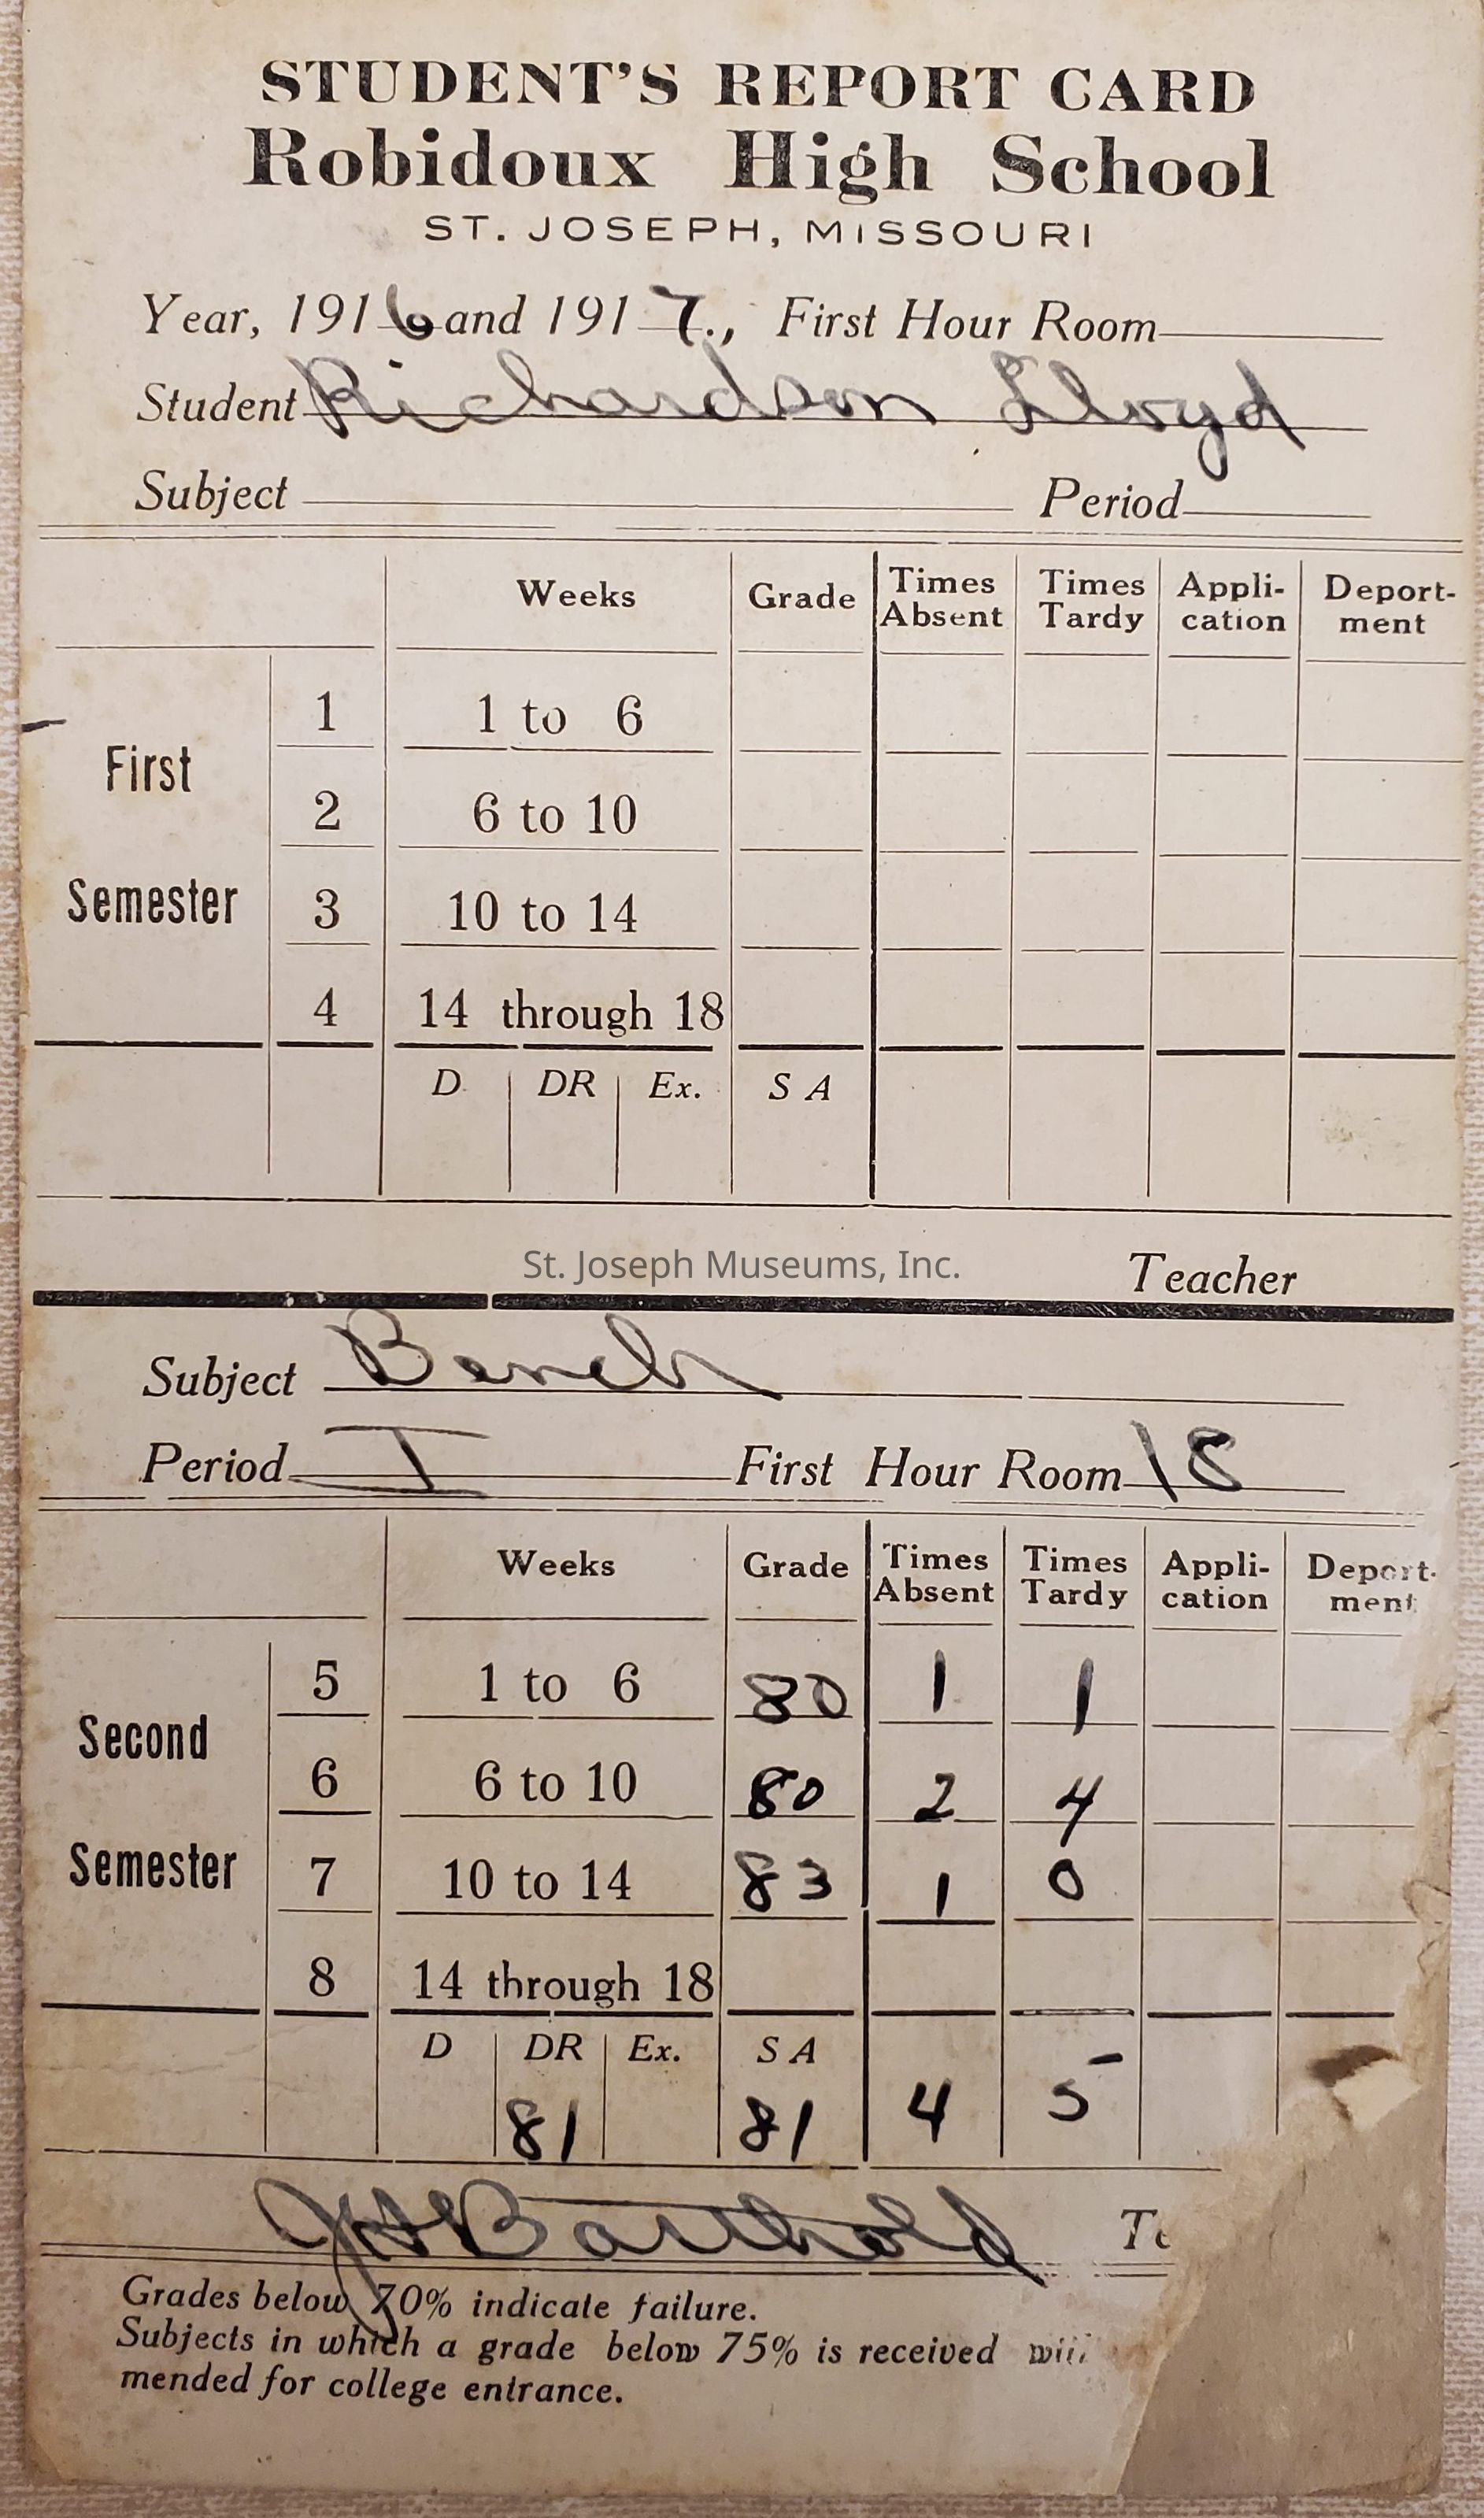 STUDENT'S REPORT CARD
Robidoux High School
ST. JOSEPH, MISSOURI
Year, 1916 and 1917., First Hour Room
Student Richardson Lloyd
Subject Period
Weeks Grade Times Absent Times Tardy Appli-cation Deport-ment
First Semester
1 1 to 6
2 6 to 10
3 10 to 14
4 14 through 18
D DR Ex. S A
St. Joseph Museums, Inc.
Teacher
Subject Bench
Period I First Hour Room 18
Weeks Grade Times Absent Times Tardy Appli-cation Deport-ment
Second Semester
5 1 to 6 80 1 1
6 6 to 10 80 2 4
7 10 to 14 83 1 0
8 14 through 18
D DR Ex. S A
81 81 4 5
JHBarthold
Grades below 70% indicate failure.
Subjects in which a grade below 75% is received
mended for college entrance.